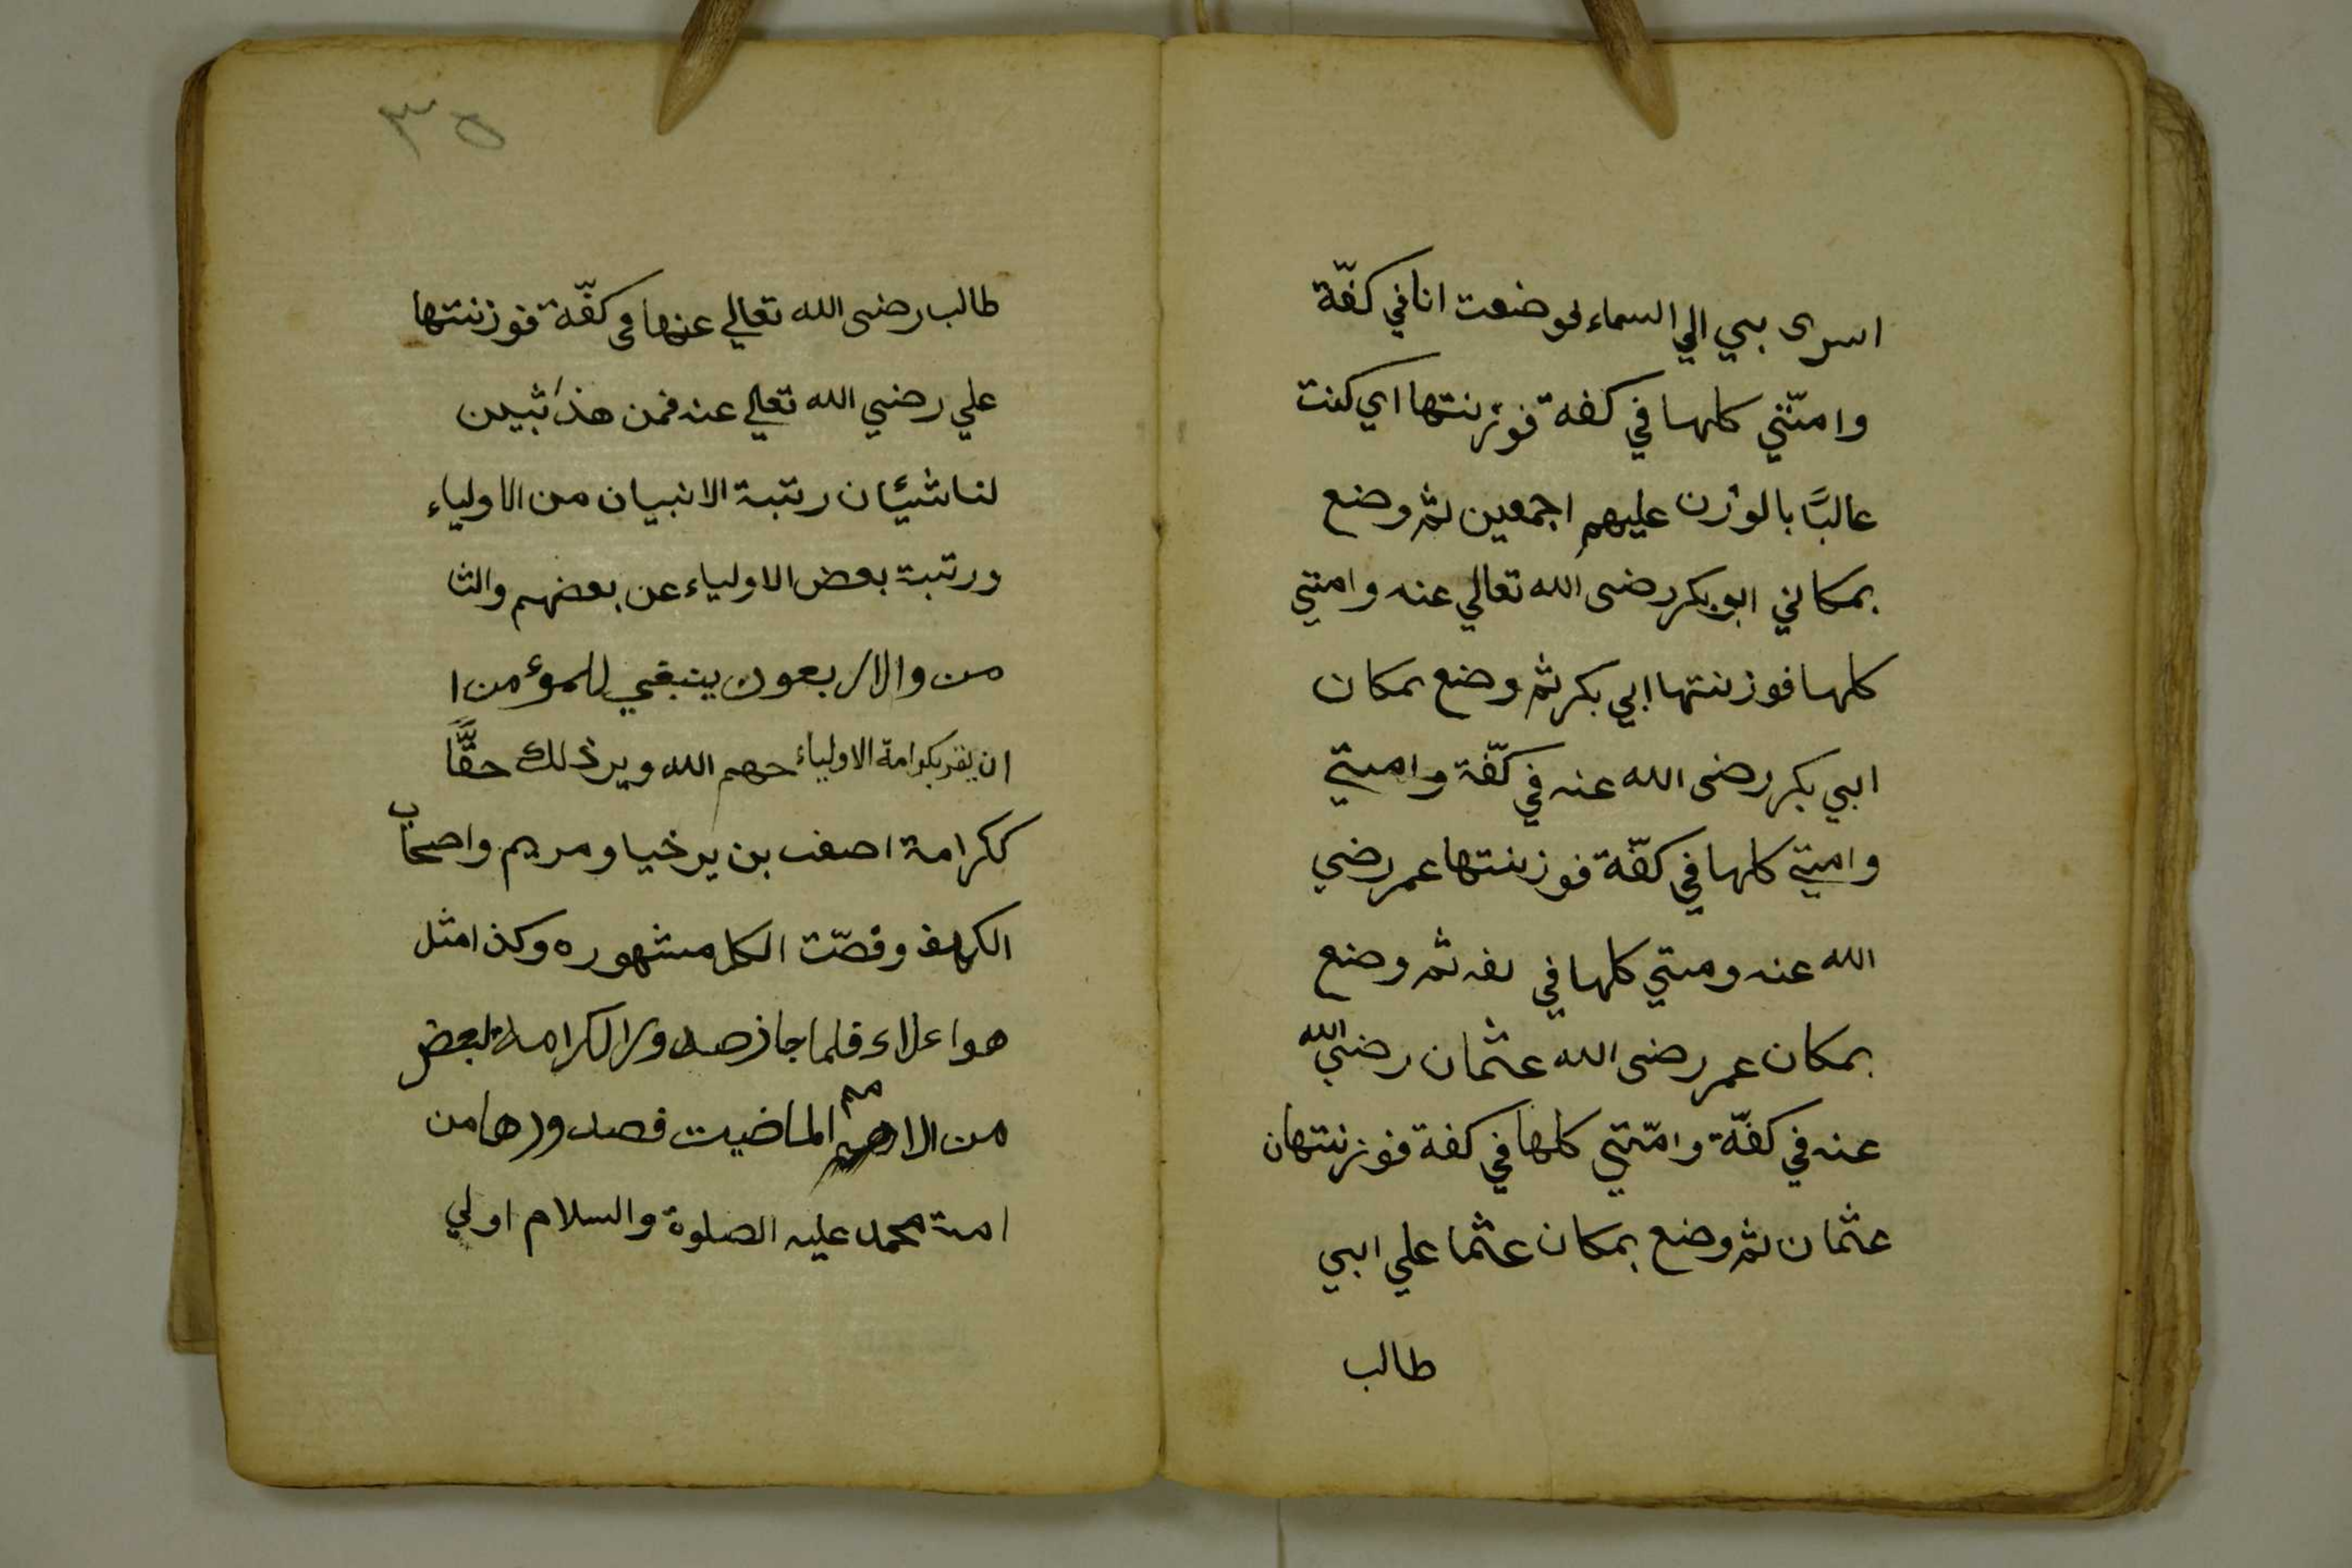 اسرى بي الي السماء لوضعت انا في كفّة
وامتّني كلها في كفة فوزنتها اي كنت
عالبًا بالوزن عليهم اجمعين ثم وضع
بمكاني ابو بكر رضى الله تعالي عنه وامتي
كلها فوزنتها ابي بكر ثم وضع بمكان
ابي بكر رضى الله عنه في كفّة وامتي
وامتي كلها في كفّة فوزنتها عمر رضي
الله عنه ومتي كلها في ثم وضع
بمكان عمر رضى الله عثمان رضي الله
عنه في كفّة وامّتي كلها في كفة فوزنتهان
عثمان ثم وضع بمكان عثما علي ابي
طالب
٣٥
طالب رضى الله تعالي عنها في كفّة فوزنتها
علي رضي الله تعالي عنه فمن هذا تبين
لنا شيئان رتبة الانبيان من الاولياء
ورتبة بعض الاولياء عن بعضهم والثا
من والاربعون ينبغي للمؤمن ا
ان يقر بكرامة الاولياء حهم الله ويرذلك حقًّا
ككرامة اصف بن يرخيا ومريم واصحاب
الكهف وقصّت الكل مشهوره وكذا مثل
هوا علاء فلما جاز صدور الكرامة لبعض
من الامم الماضيت فصدورها من
امة محمد عليه الصلوة والسلام اولي